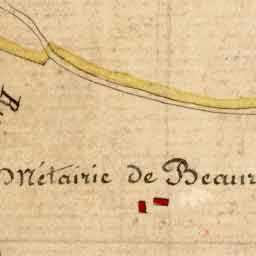 Métairie de Beaur